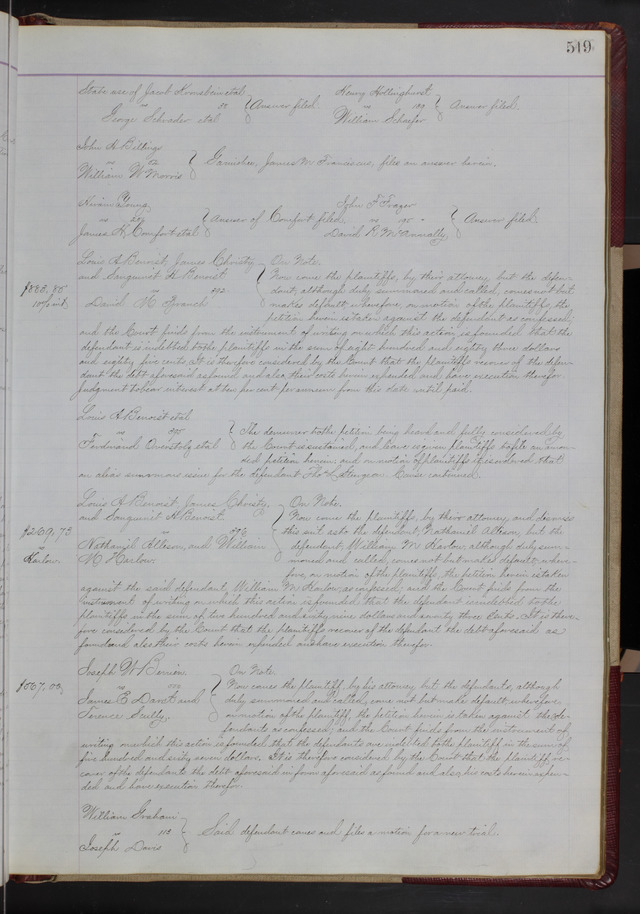 519
State use of Jacob et al
vs 59 Answer filed.
George Schrader et al
Henry Hollinghurst
vs 189 Answer filed.
William Schaefer
John H Billings
vs 52
William W Morris
Garnishee, James M Franciscus, files an answer herein.
Hiram Young
vs Answer of Comfort filed.
James H Comfort et al
John F Frazer
vs Answer filed.
David R McAnnally
Louis A Benoist, James Christy
and Sanguinet H Benoist
vs 592
David M French
$883.85
10% int
On Note.
Now come the plaintiffs, by their attorney, but the defen-
dant, although duly summoned and called, comes not but
makes default; wherefore, on motion of the plaintiffs, the
petition herein is taken against the defendant as confessed;
and the Court finds from the instrument of writing on which this action is founded that the
defendant is indebted to the plaintiffs in the sum of eight hundred and eighty three dollars
and eighty five cents. It is therefore considered by the Court that the plaintiffs recover of the defen-
dant the debt aforesaid as found and also their costs herein expended and have execution therefor.
Judgment to bear interest at ten per cent per annum from this date until paid.
Louis A Benoist et al
vs
Ferdinand Overstolz et al
The demurrer to the petition being heard and fully considered by
the Court is sustained, and leave is given plaintiffs to file an amen-
ded petition herein; and on motion of plaintiffs it is ordered that
an alias summons issue for the defendant Thos L Sturgeon. Cause continued.
Louis A Benoist, James Christy,
and Sanguinet H Benoist.
vs 576
Nathaniel Alleson, and William
M Harlow.
$269.73
vs
Harlow.
On Note.
Now come the plaintiffs, by their attorney and dismiss
this suit as to the defendant, Nathaniel Alleson, but the
defendant, William M Harlow, although duly sum-
moned and called, comes not but makes default; where-
fore, on motion of the plaintiffs, the petition herein is taken
against the said defendant, William M Harlow as confessed; and the Court finds from the
instrument of writing on which this action is founded, that the defendant is indebted to the
plaintiffs in the sum of two hundred and sixty nine dollars and seventy three Cents. It is there-
fore considered by the Court that the plaintiffs recover of the defendant the debt aforesaid as
found and also their costs herein expended and have execution therefor.
Joseph W Berrien
vs
James E Dant and
Terence Scully.
$567.00
On Note.
Now comes the plaintiff, by his attorney but the defendants, although
duly summoned and called, come not but make default; wherefore
on motion of the plaintiff, the petition herein is taken against the de-
fendants as confessed; and the Court finds from the instrument of
writing on which this action is founded, that the defendants are indebted to the plaintiff in the sum of
five hundred and sixty seven dollars. It is therefore considered by the Court that the plaintiff re-
cover of the defendants the debt aforesaid in form aforesaid as found and also his costs herein expen-
ded and have execution therefor.
William Graham
vs 113
Joseph Davis
Said defendant comes and files a motion for a new trial.